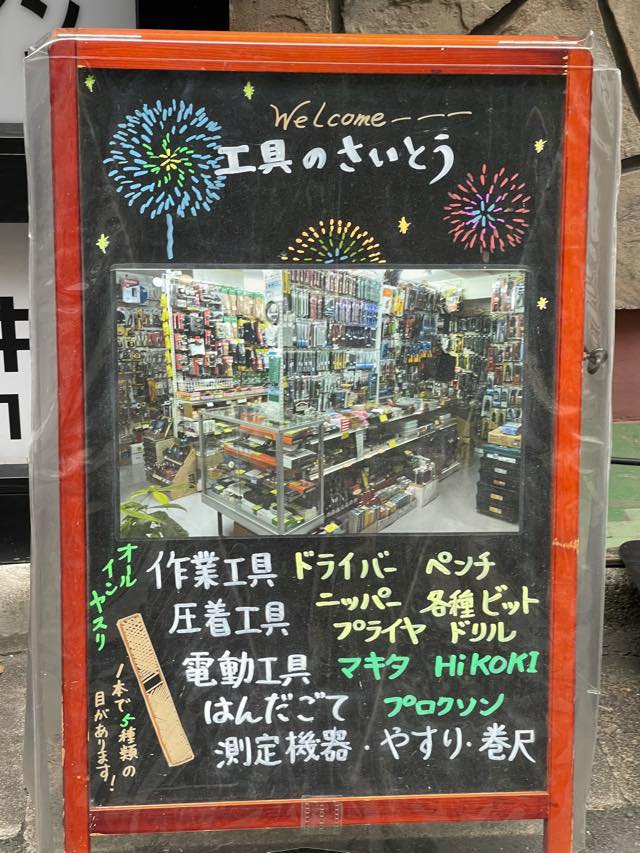 Welcome----
工具のさいとう
オルインヤスリ
作業工具 ドライバー ペンチ
ニッパー 各種ビット
圧着工具
プライヤ ドリル
電動工具 マキタ HiKOKI
はんだごて プロクソン
測定機器・やすり・巻尺
1本で5種類の
目があります!